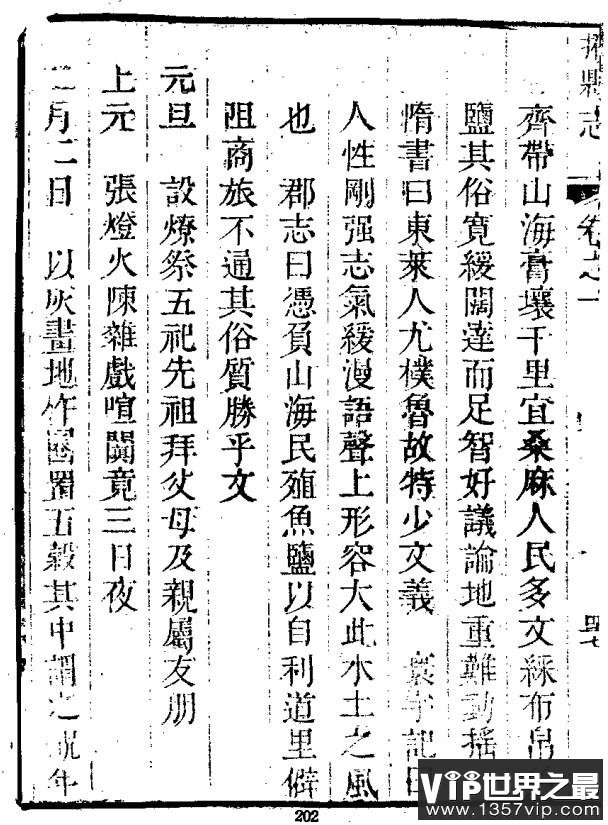 志
卷之一
齊帶山海膏壤千里宜桑麻人民多文綵布帛
鹽其俗寬緩闊達而足智好議論地重難動搖
惰書曰東萊人尤樸魯故特少文義 寰宇記曰
人性剛强志氣緩漫語聲上形容大此水土之風
也 郡志曰憑負山海民殖魚鹽以自利道里僻
阻商旅不通其俗質勝乎文
元旦 設燎祭五祀先祖拜父母及親屬友朋
上元 張燈火陳雜戲喧闐竟三日夜
月二日 以灰畫地作囤置五穀其中謂之
202
VIP世界之最
www.1357vip.com